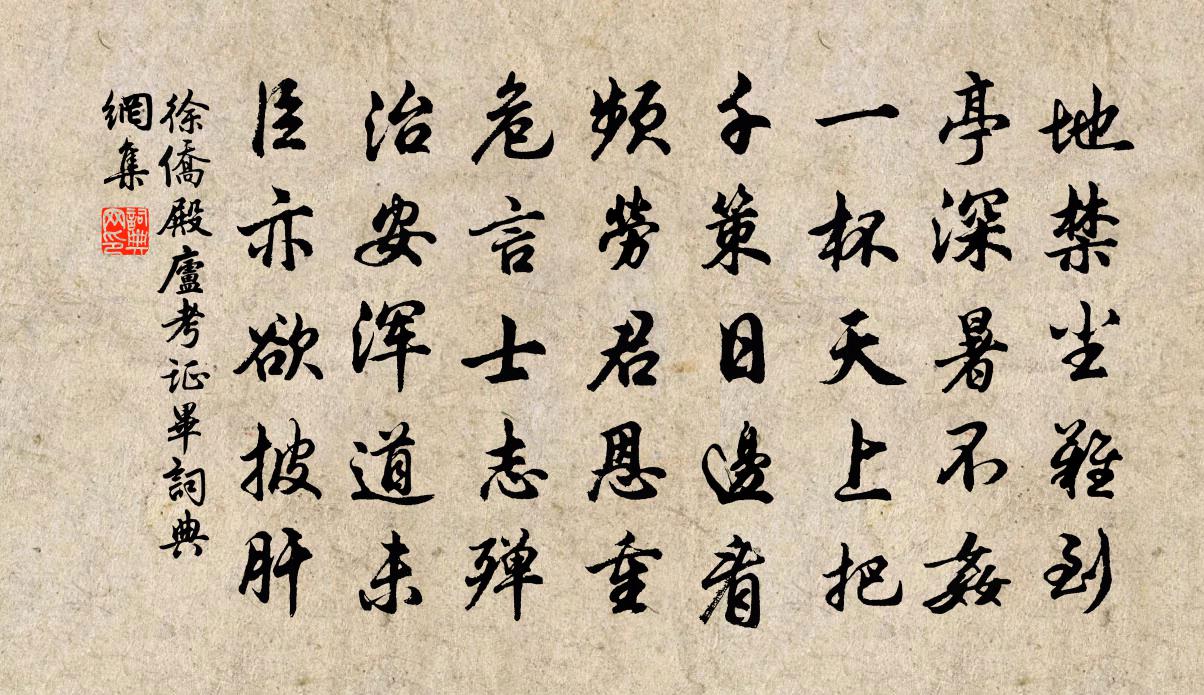 地禁尘難到
亭深暑不姦
一杯天上把
千策日邊看
頻勞君恩重
危言士志殫
治安浑道未
臣亦欲披肝
徐僑殿廬考证畢詞典
網集
詞典
网印